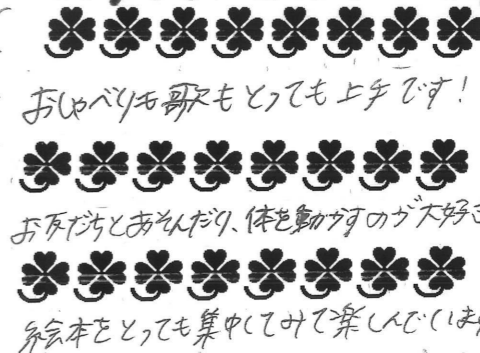 おしゃべりも歌もとっても上手です!
お友だちとあそんだり、体を動かすのが大好き
絵本をとっても集中してみて楽しんでいます